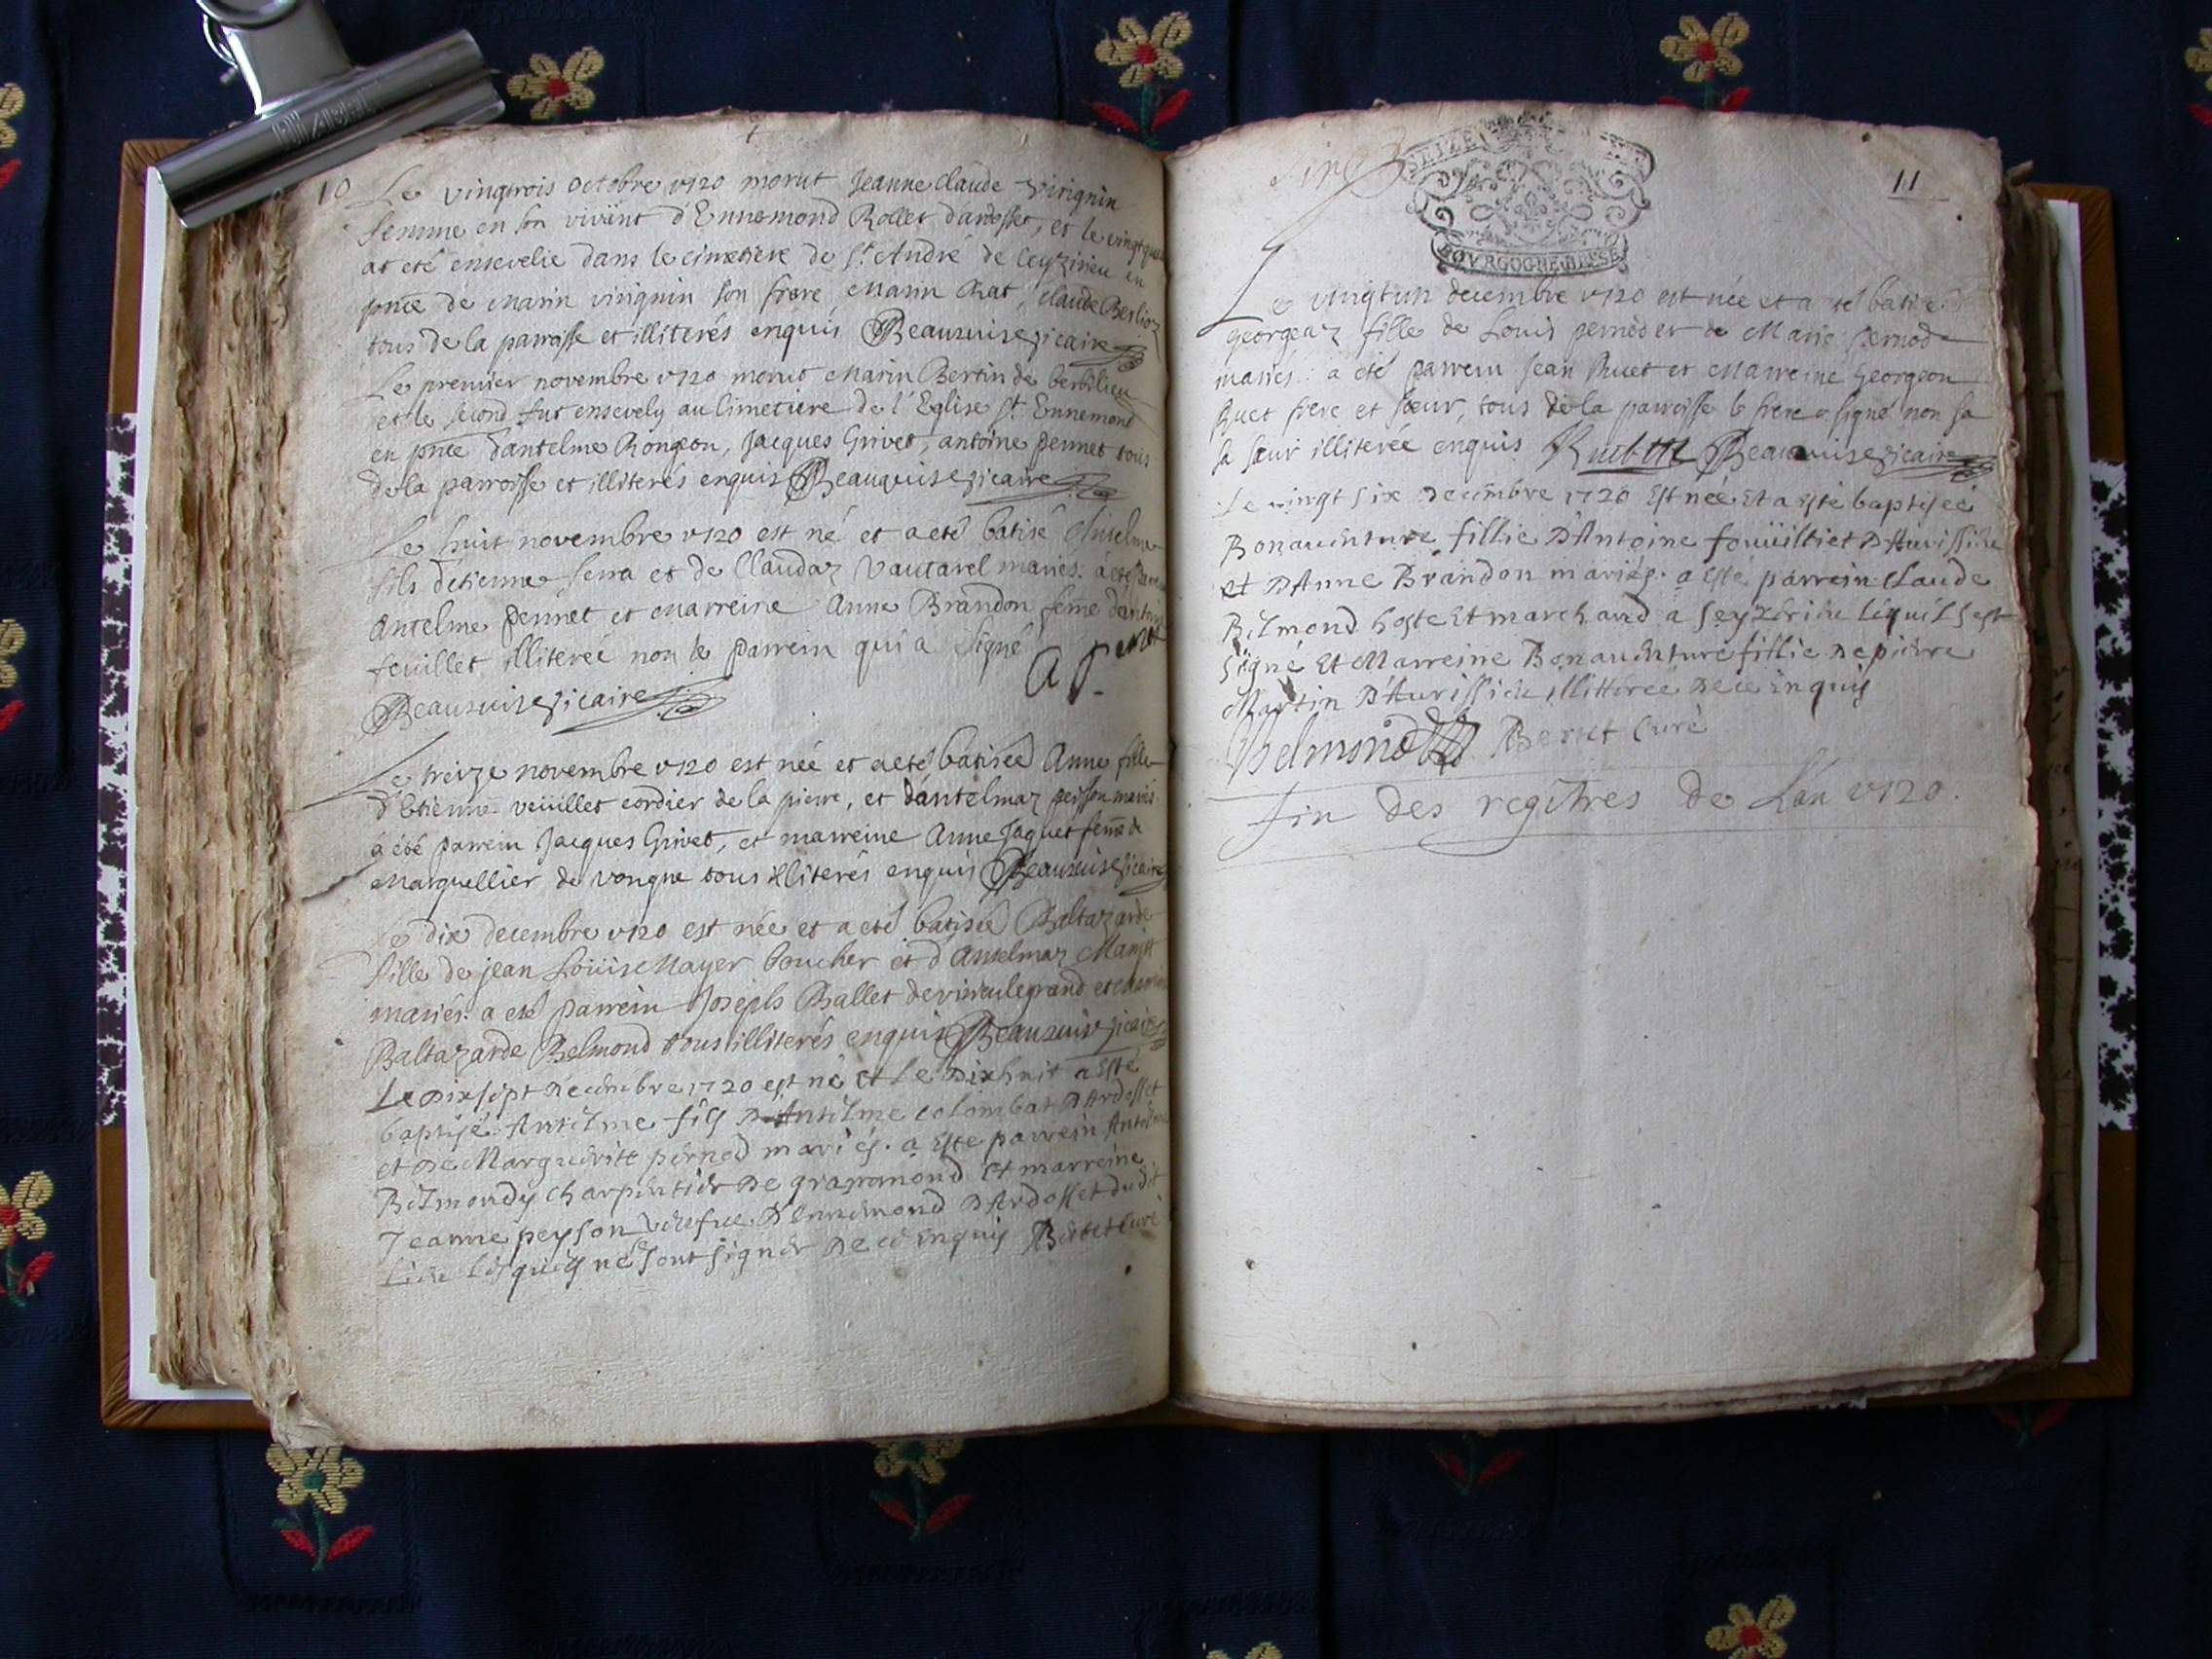 10
Le vingtrois octobre v120 morut Jeanne Claude virignin
femme en son vivant d'Ennemond Rollet dardosset, et le vingtqua
at eté ensevelie dans le cimetiere de St. André de Ceyzirieu en
pnce de Marin virignin son frere Marin Rat, claude Berlioz
tous de la parroisse et illiterés enquis Beauvuise vicaire
Le premier novembre v120 morut Marin Bertin de berbilieu
et le second fut ensevely au cimetiere de l'Eglise St. Ennemond
en pnce dantelme Rongeon, Jacques Grivet, antoine pennet tous
de la parroisse et illiterés enquis Beauvuise vicaire
Le huit novembre v120 est né et a eté batisé Antelme
fils détienne serra et de Claudaz Vautarel mariés. a eté
Antelme pennet et Marreine Anne Brandon feme dantoine
feuillet illiterée non le parrein qui a signé
A P
Beauvuise vicaire
Le treize novembre v120 est née et a eté batisée Anne fille
d'Etienne veüillet cordier de la pierre, et dantelmaz peisson mariés
à été parrein Jacques Grivet, et marreine Anne Jaquet feme de
Marguellier de vongne tous illiterés enquis Beauvuise vicaire
Le dix decembre v120 est née et a eté batisée Baltazarde
fille de jean Loüis Mayer boucher et d'Antelmaz
mariés. a eté parrein Joseph Ballet de virieulegrand et
Baltazarde Belmond tous illiterés enquis Beauvuise vicaire
Le Dixsept Decembre 1720 est né et Le Dixhuit a esté
baptisé Antelme fils D'Antelme colombat D'Ardosset
et De Marguerite pernod mariés. a Esté parrein Antelme
Belmondy charpentier De grammond Et marreine
Jeanne peyson veefue D'ennemond D'Ardosset dudit
Lieu Lesquels ne sont signer De ce Enquis Bertet Curé
SEIZE
BOVRGOGNE BRESSE
11
Le vingtun decembre v120 est née et a eté batisé
Georgeaz fille de Louis perneder et de Marie pernod
mariés: a été parrein Jean Ruet et Marreine Georgeon
Ruet frere et sœur, tous de la parroisse le frere a signé non sa
sa sœur illiterée enquis Ruet Beauvuise vicaire
Le vingt six Decembre 1720 Est née Et a esté baptisée
Bonauenture fillie D'Antoine fouüilliet D'Aurissieu
et D'Anne Brandon mariés. a Esté parrein Claude
Belmond hoste Et marchand a Seyzerieu Lequel s'est
signé Et Marreine Bonauenture fillie De pierre
Martin D'Aurissieu illitterée De ce Enquis
Belmond Bertet Curé
fin des regîtres de L'an v120.